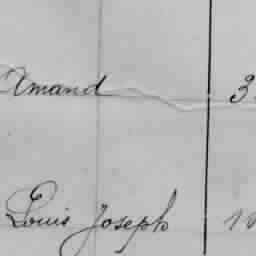 Amand 3
Louis Joseph 10